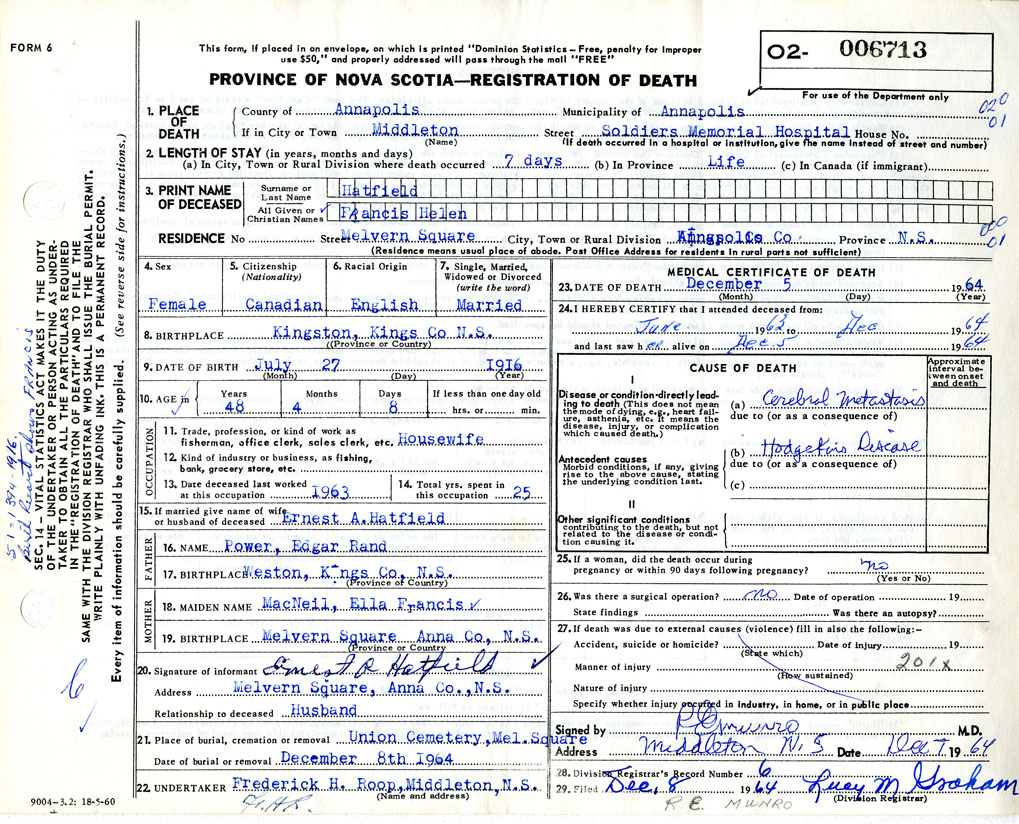 FORM 6
This form, if placed in an envelope, on which is printed "Dominion Statistics – Free, penalty for improper
use $50," and properly addressed will pass through the mail "FREE"
PROVINCE OF NOVA SCOTIA—REGISTRATION OF DEATH
02- 006713
For use of the Department only
1. PLACE OF DEATH County of Annapolis Municipality of Annapolis 020
If in City or Town Middleton Street Soldiers Memorial Hospital House No. 01
(Name) (If death occurred in a hospital or institution, give the name instead of street and number)
2. LENGTH OF STAY (in years, months and days)
(a) In City, Town or Rural Division where death occurred 7 days (b) In Province Life (c) In Canada (if immigrant)
3. PRINT NAME OF DECEASED Surname or Last Name Hatfield
All Given or Christian Names Francis Helen
RESIDENCE No Street Melvern Square City, Town or Rural Division Annapolis Co. Province N.S. 01
(Residence means usual place of abode. Post Office Address for residents in rural parts not sufficient)
4. Sex Female
5. Citizenship (Nationality) Canadian
6. Racial Origin English
7. Single, Married, Widowed or Divorced (write the word) Married
8. BIRTHPLACE Kingston, Kings Co N.S.
(Province or Country)
9. DATE OF BIRTH July 27 1916
(Month) (Day) (Year)
10. AGE in Years 48 Months 4 Days 8 If less than one day old hrs. or min.
OCCUPATION
11. Trade, profession, or kind of work as
fisherman, office clerk, sales clerk, etc. Housewife
12. Kind of industry or business, as fishing,
bank, grocery store, etc.
13. Date deceased last worked at this occupation 1963
14. Total yrs. spent in this occupation 25
15. If married give name of wife
or husband of deceased Ernest A.Hatfield
FATHER
16. NAME Power, Edgar Rand
17. BIRTHPLACE Weston, Kings Co, N.S.
(Province of Country)
MOTHER
18. MAIDEN NAME MacNeil, Ella Francis
19. BIRTHPLACE Melvern Square Anna Co, N.S.
(Province or Country)
20. Signature of informant Ernest A Hatfield
Address Melvern Square, Anna Co.,N.S.
Relationship to deceased Husband
21. Place of burial, cremation or removal Union Cemetery,Mel.Square
Date of burial or removal December 8th 1964
22. UNDERTAKER Frederick H. Roop,Middleton,N.S.
(Name and address)
9004-3.2: 18-5-60
MEDICAL CERTIFICATE OF DEATH
23. DATE OF DEATH December 5 1964
(Month) (Day) (Year)
24. I HEREBY CERTIFY that I attended deceased from:
June 1962 to Dec 1964
and last saw her alive on Dec 5 1964
CAUSE OF DEATH
Approximate interval between onset and death
I
Disease or condition directly leading to death (This does not mean
the mode of dying, e.g., heart failure, asthenia, etc. It means the
disease, injury, or complication which caused death.)
(a) Cerebral Metastasis
due to (or as a consequence of)
Antecedent causes
Morbid conditions, if any, giving rise to the above cause, stating
the underlying condition last.
(b) Hodgekins Disease
due to (or as a consequence of)
(c)
II
Other significant conditions
contributing to the death, but not related to the disease or condition causing it.
25. If a woman, did the death occur during
pregnancy or within 90 days following pregnancy? no
(Yes or No)
26. Was there a surgical operation? no Date of operation 19
State findings Was there an autopsy?
27. If death was due to external causes (violence) fill in also the following:–
Accident, suicide or homicide? Date of injury 19
(State which)
Manner of injury 201x
(How sustained)
Nature of injury
Specify whether injury occurred in industry, in home, or in public place
Signed by R E Munro M.D.
Address Middleton N.S Date Dec 7 1964
28. Division Registrar's Record Number 6
29. Filed Dec, 8 1964 Lucy M Graham
(Division Registrar)
R E. MUNRO
SEC. 14 – VITAL STATISTICS ACT MAKES IT THE DUTY
OF THE UNDERTAKER OR PERSON ACTING AS UNDER-
TAKER TO OBTAIN ALL THE PARTICULARS REQUIRED
IN THE "REGISTRATION OF DEATH" AND TO FILE THE
SAME WITH THE DIVISION REGISTRAR WHO SHALL ISSUE THE BURIAL PERMIT.
WRITE PLAINLY WITH UNFADING INK. THIS IS A PERMANENT RECORD.
Every item of information should be carefully supplied. (See reverse side for instructions.)
Birth Record shows FRANCIS
6